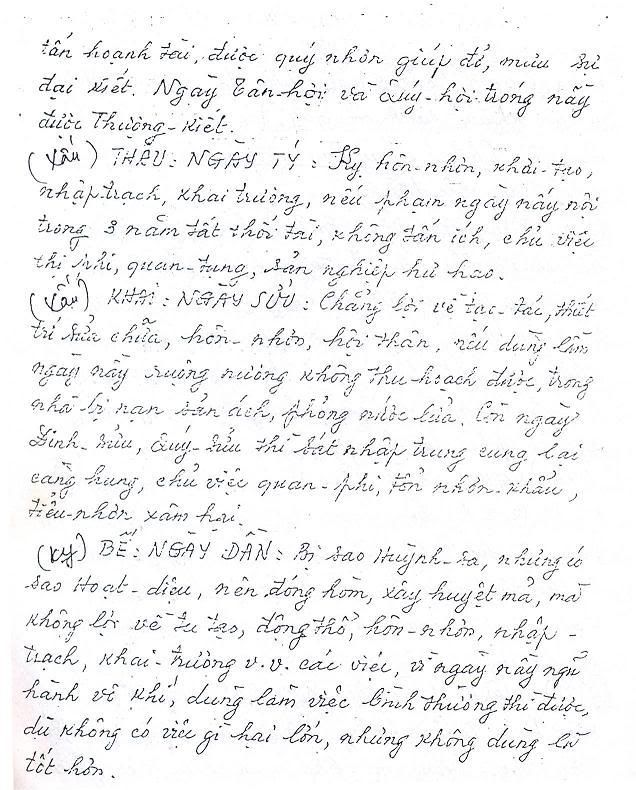 tấn hoạnh tài, được quý nhơn giúp đỡ, mưu sự
đại kiết. Ngày Tân-hợi và Quý-hợi trong nầy
được Thượng-kiết.
(xấu) THÂU: NGÀY TÝ: Kỵ hôn-nhơn, khởi-tạo,
nhập trạch, khai trương, nếu phạm ngày nầy nội
trong 3 năm tất thối tài, không tấn ích, chủ việc
thị phi, quan-tụng, sản nghiệp hư hao.
(xấu) KHAI: NGÀY SỬU: Chẳng lợi về tạo-tác, thiết
trí sửa chữa, hôn-nhơn, hội thân, nếu dùng lầm
ngày nầy ruộng nương không thu hoạch được, trong
nhà bị nạn sản ách, phỏng nước lửa. Còn ngày
Đinh-sửu, Quý-sửu thì sát nhập trung cung lại
càng hung, chủ việc quan-phi, tổn nhơn-khẩu,
tiểu-nhơn xâm hại.
(kỵ) BẾ: NGÀY DẦN: Bị sao Huỳnh-sa, nhưng có
sao Hoạt-diệu, nên đóng hòm, xây huyệt mả, mà
không lợi về tu tạo, động thổ, hôn-nhơn, nhập-
trạch, khai-trương v.v. các việc, vì ngày nầy ngũ
hành vô khí, dùng làm việc bình thường thì được,
dù không có việc gì hại lớn, nhưng không dùng là
tốt hơn.